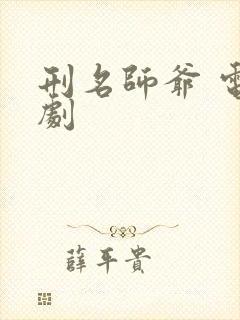 刑名師爺 電
劇
薛平貴